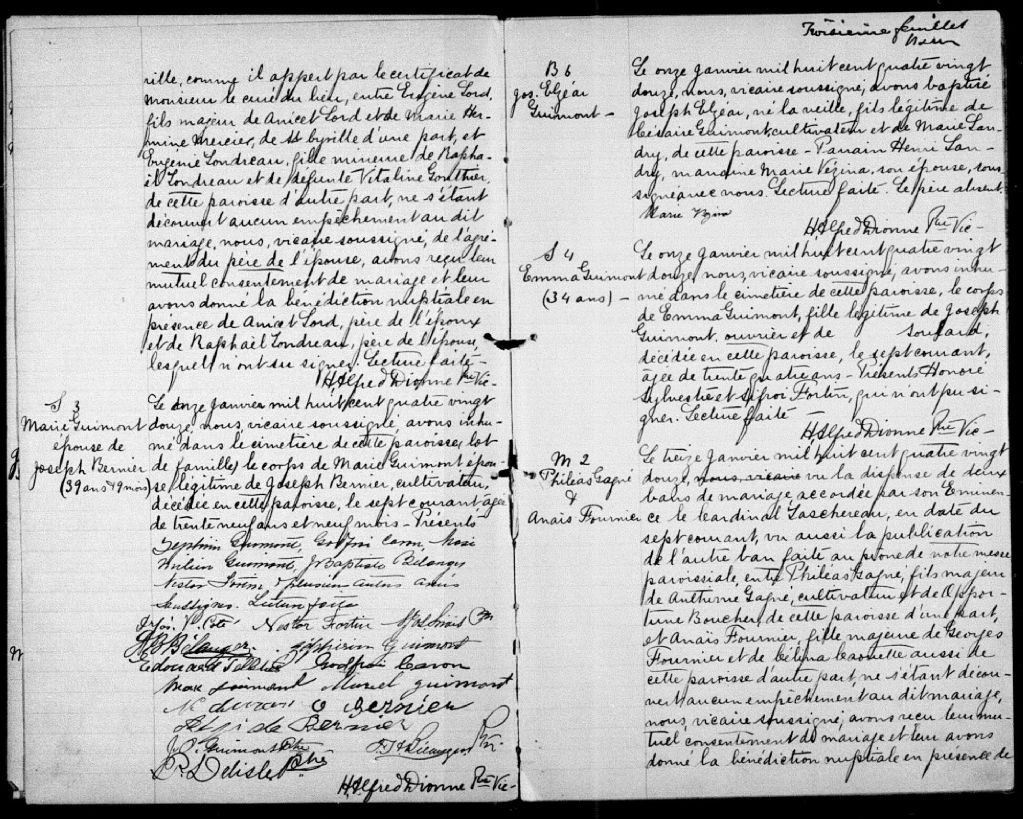 rille, comme il appert par le certificat de
Monsieur le curé du lieu, entre Eugène Lord,
fils majeur de Anicet Lord et de Marie Her-
mine Mercier, de St Cyrille d'une part, et
Eugénie Londreau, fille mineure de Rapha-
ël Londreau et de défunte Vitaline Gonthier,
de cette paroisse d'autre part, ne s'étant
découvert aucun empêchement au dit
mariage, nous, vicaire soussigné, de l'agré-
ment du père de l'épouse, avons reçu leur
mutuel consentement de mariage et leur
avons donné la bénédiction nuptiale en
présence de Anicet Lord, père de l'époux
et de Raphaël Londreau, père de l'épouse,
lesquels n'ont su signer. Lecture faite-
H Alfred Dionne Ptre Vic-
S 3
Marie Guimont
épouse de
Joseph Bernier
(39 ans & 9 mois)
Le onze Janvier mil huit cent quatre vingt
douze, nous, vicaire soussigné, avons inhu-
mé dans le cimetière de cette paroisse, (lot
de famille) le corps de Marie Guimont épou-
se légitime de Joseph Bernier, cultivateur,
décédée en cette paroisse, le sept courant âgée
de trente neuf ans et neuf mois - Présents
Guimont, Godfroi Caron,
Guimont, J Baptiste Bélanger
Nestor & plusieurs autres amis
soussignés. Lecture faite
Jos. Coté Nestor Fortin
J B Bélanger. Zéphirin Guimont
Edouard Pelletier Godfroi Caron
Guimont
Bernier
Bernier
Guimont Ptre Ptr-
Delisle Ptre
H Alfred Dionne Ptre Vic-
Troisième feuillet
B 6
Jos. Elzéar
Guimont -
Le onze Janvier mil huit cent quatre vingt
douze, nous, vicaire soussigné, avons baptisé
Joseph Elzéar, né la veille, fils légitime de
Césaire Guimont, cultivateur et de Marie Lan-
dry, de cette paroisse - Parrain Henri Lan-
dry, marraine Marie Vézina, son épouse, sous-
signée avec nous. Lecture faite. Le père absent.
Marie Vezina
H Alfred Dionne Ptre Vic-
S 4
Emma Guimont
(34 ans) -
Le onze Janvier mil huit cent quatre vingt
douze, nous, vicaire soussigné, avons inhu-
mé dans le cimetière de cette paroisse, le corps
de Emma Guimont, fille légitime de Joseph
Guimont, ouvrier et de Soulard,
décédée en cette paroisse, le sept courant,
âgée de trente quatre ans - Présents Honoré
Sylvestre et Fortin, qui n'ont pu si-
gner. Lecture faite
H Alfred Dionne Ptre Vic-
M 2
Philéas Gagné
&
Anaïs Fournier
Le treize Janvier mil huit cent quatre vingt
douze, nous, vicaire vu la dispense de deux
bans de mariage accordée par son Eminen-
ce le Cardinal Taschereau, en date du
sept courant, vu aussi la publication
de l'autre ban faite au prône de notre messe
paroissiale, entre Philéas Gagné, fils majeur
de Anthime Gagné, cultivateur et de Oppor-
tune Boucher, de cette paroisse d'une part,
et Anaïs Fournier, fille majeure de Georges
Fournier et de Célina Caouette aussi de
cette paroisse d'autre part, ne s'étant décou-
vert aucun empêchement au dit mariage,
nous, vicaire soussigné, avons reçu leur mu-
tuel consentement de mariage et leur avons
donné la bénédiction nuptiale en présence de